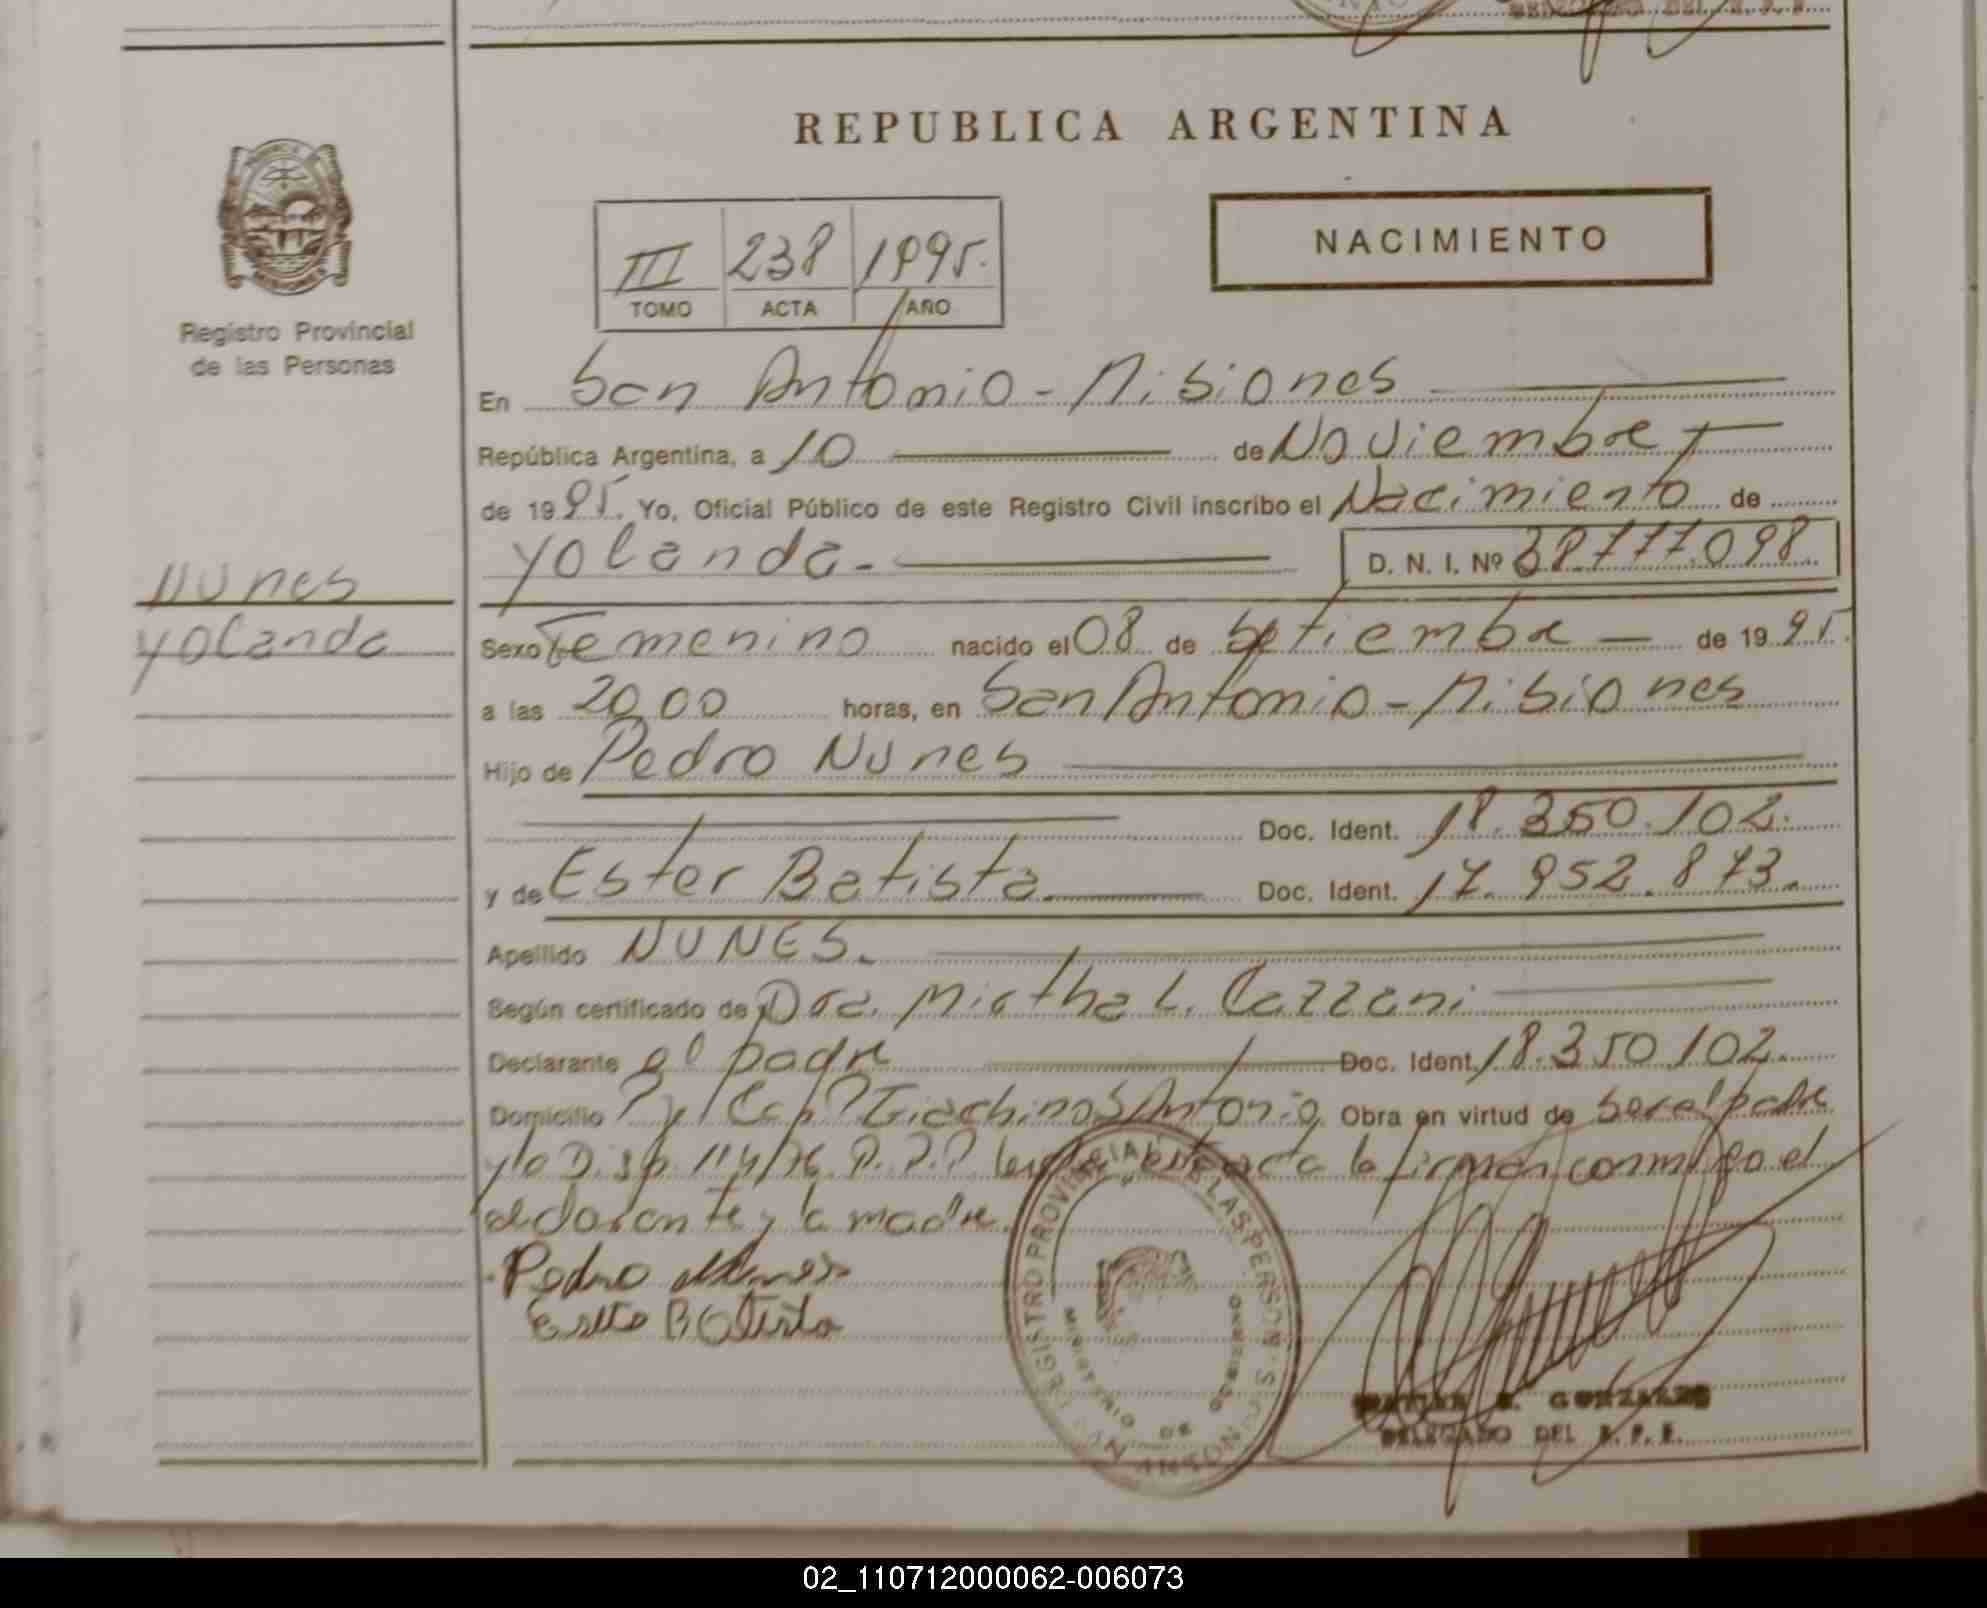 REPUBLICA ARGENTINA
NACIMIENTO
III 238 1995.
TOMO ACTA AÑO
Registro Provincial
de las Personas
En San Antonio - Misiones
República Argentina, a 10 de Noviembre
de 1995. Yo, Oficial Público de este Registro Civil inscribo el Nacimiento de
Yolanda.- D. N. I. Nº 38.777.098.
Nunes
Yolanda
Sexo Femenino nacido el 08 de Setiembre de 1995.
a las 20,00 horas, en San Antonio - Misiones
Hijo de Pedro Nunes
Doc. Ident. 18.350.102.
y de Ester Batista. Doc. Ident. 17.952.873.
Apellido NUNES.
Según certificado de Dra. Mirtha L. Cazzani
Declarante el padre Doc. Ident. 18.350.102.
Domicilio Giachino S Antonio Obra en virtud de ser el padre
y la Disp. 114/76 R.P.P. la firman conmigo el
declarante y la madre.
Pedro Nunes
Ester Batista
REGISTRO PROVINCIAL DE LAS PERSONAS
MINISTERIO DE GOBIERNO
SAN ANTONIO
GONZALEZ
DELEGADO DEL R. P. P.
02_110712000062-006073